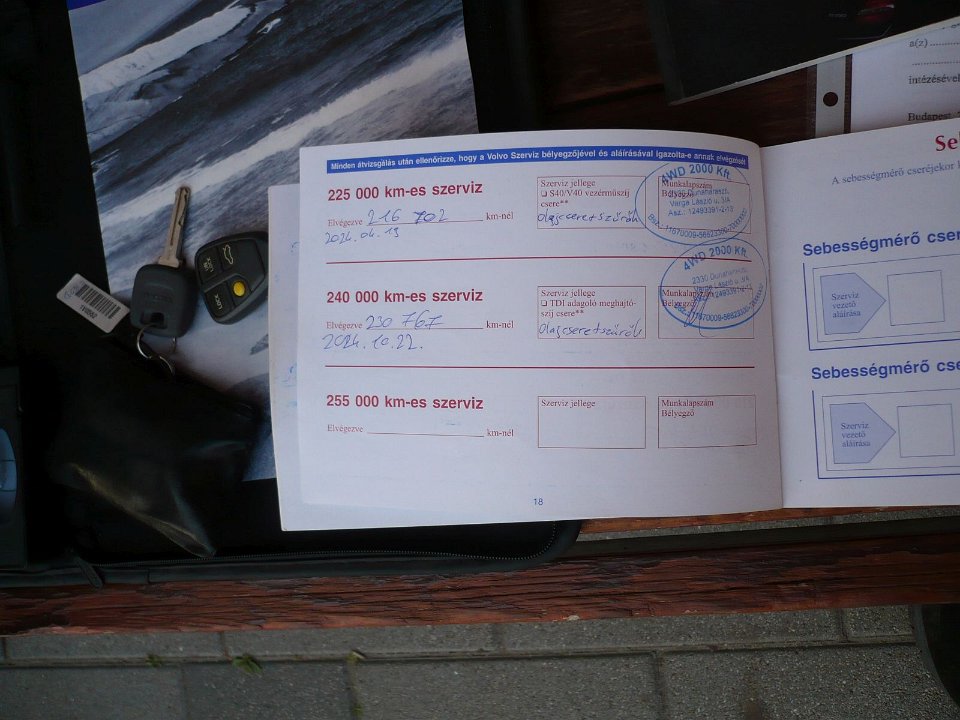 a(z)
intézésével
Budapest
Minden átvizsgálás után ellenőrizze, hogy a Volvo Szerviz bélyegzőjével és aláírásával Igazolta-e annak elvégzését
225 000 km-es szerviz
Elvégezve 216 702 km-nél
2024. 04. 19
Szerviz jellege
S40/V40 vezérműszíj
csere**
Olajcseretszűrők
Munkalapszám
Bélyegző
4WD 2000 Kft.
2330 Dunaharaszti,
Varga László u. 3/A
Asz.: 12493391-2-13
240 000 km-es szerviz
Elvégezve 230 767 km-nél
2024. 10. 22.
Szerviz jellege
TDI adagoló meghajtó-
szíj csere**
Olajcseretszűrők
Munkalapszám
Bélyegző
4WD 2000 Kft.
2330 Dunaharaszti,
Varga László u. 3/A
255 000 km-es szerviz
Elvégezve km-nél
Szerviz jellege
Munkalapszám
Bélyegző
18
Se
A sebességmérő cseréjekor
Sebességmérő cser
Szerviz
vezető
aláírása
Sebességmérő cse
Szerviz
vezető
aláírása
LOCK